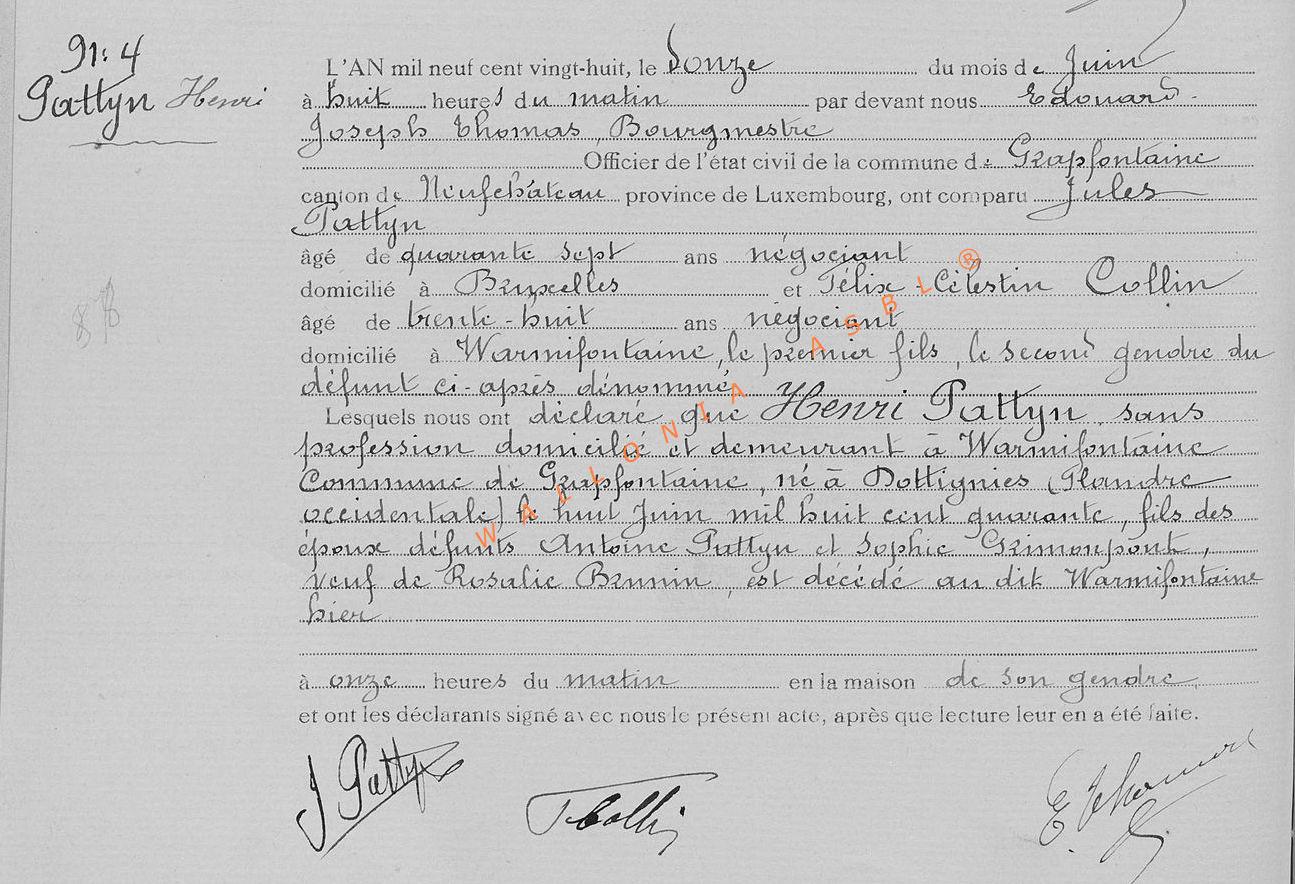 N: 4
Pattyn Henri
L'AN mil neuf cent vingt-huit, le Douze du mois de Juin
à huit heures du matin par devant nous Edouard-
Joseph Thomas, Bourgmestre
Officier de l'état civil de la commune de Grapfontaine
canton de Neufchâteau province de Luxembourg, ont comparu Jules
Pattyn
âgé de quarante sept ans négociant
domicilié à Bruxelles et Félix-Célestin Collin
âgé de trente-huit ans négociant
domicilié à Warmifontaine, le premier fils, le second gendre du
défunt ci-après dénommé
Lesquels nous ont déclaré que Henri Pattyn, sans
profession domicilié et demeurant à Warmifontaine
Commune de Grapfontaine, né à Dottignies (Flandre
occidentale) le huit Juin mil huit cent quarante, fils des
époux défunts Antoine Pattyn et Sophie Grimonpont,
veuf de Rosalie Brunin, est décédé au dit Warmifontaine
hier
à onze heures du matin en la maison de son gendre,
et ont les déclarants signé avec nous le présent acte, après que lecture leur en a été faite.
J Pattyn
F Collin
E. Thomas
WALLONIA ASBL ®